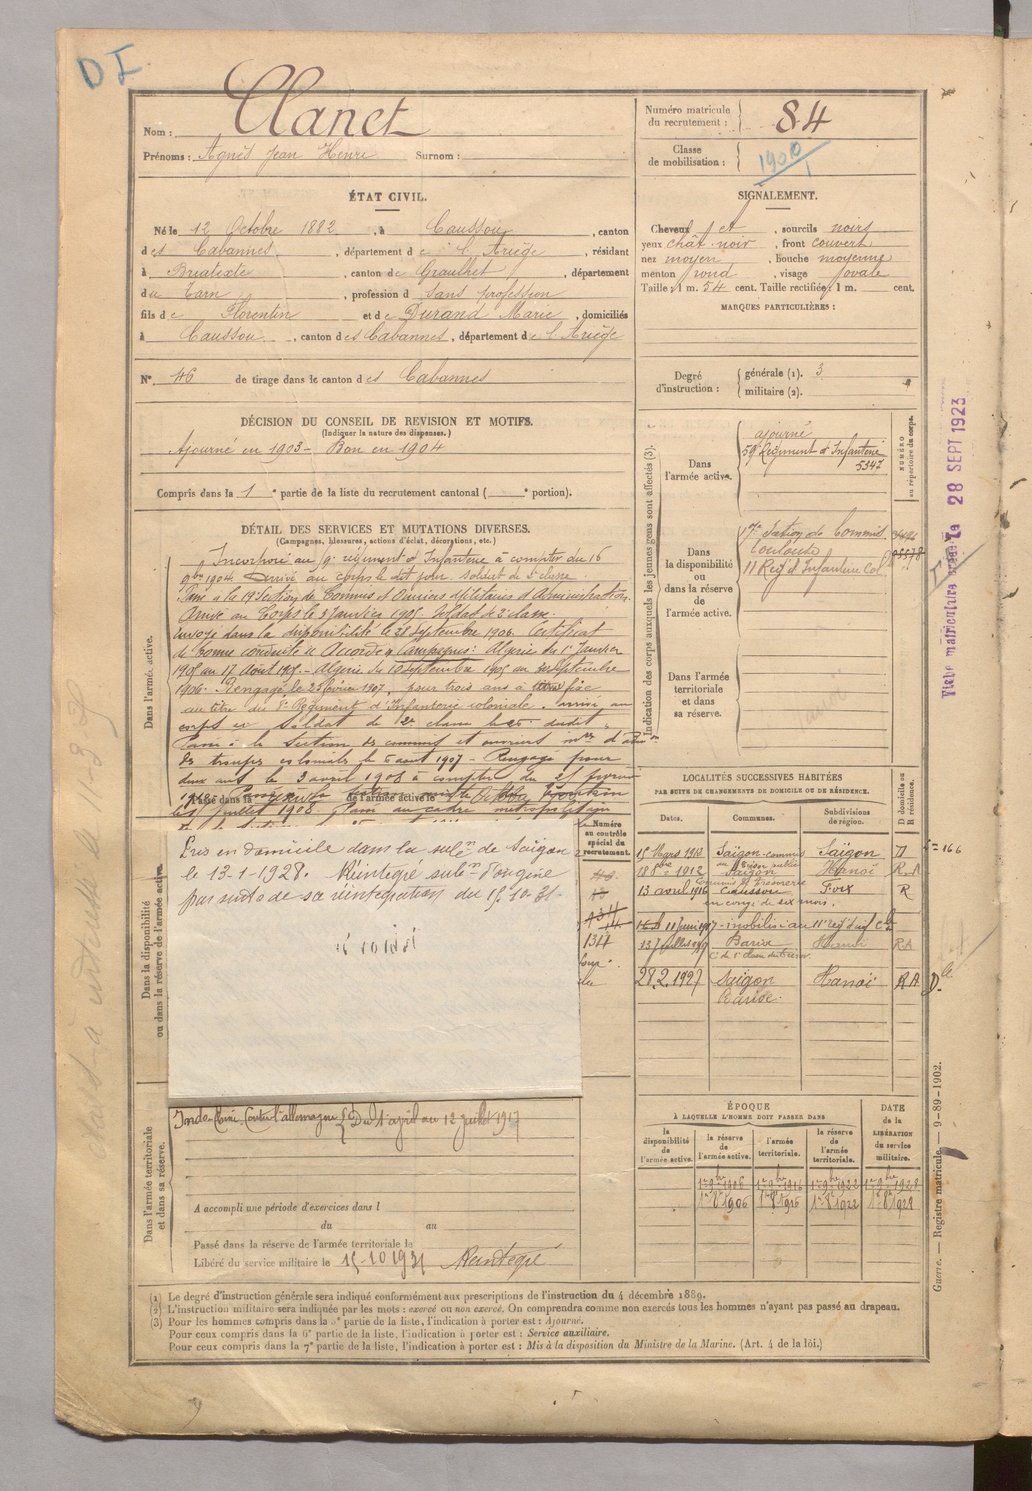 DI
Nom : Clanet
Prénoms : Agnès Jean Henri Surnom :
Numéro matricule du recrutement : 84
Classe de mobilisation : 1900
ÉTAT CIVIL.
Né le 12 Octobre 1882, à Caussou, canton
des Cabannes, département de l'Ariège, résidant
à Briatexte, canton de Graulhet, département
du Tarn, profession d sans profession
fils de Florentin et de Durand Marie, domiciliés
à Caussou, canton des Cabannes, département de l'Ariège
N° 46 de tirage dans le canton des Cabannes
SIGNALEMENT.
Cheveux et, sourcils noirs
yeux chât. noir, front couvert
nez moyen, bouche moyenne
menton rond, visage ovale
Taille : 1 m. 54 cent. Taille rectifiée : 1 m. cent.
MARQUES PARTICULIÈRES :
Degré d'instruction : générale (1). 3
militaire (2).
DÉCISION DU CONSEIL DE REVISION ET MOTIFS.
(Indiquer la nature des dispenses.)
Ajourné en 1903 - Bon en 1904
Compris dans la 1e partie de la liste du recrutement cantonal ( e portion).
DÉTAIL DES SERVICES ET MUTATIONS DIVERSES.
(Campagnes, blessures, actions d'éclat, décorations, etc.)
Dans l'armée active.
Incorporé au régiment d'Infanterie à compter du 16
9bre 1904. Arrivé au corps le dit jour soldat de 2e classe
Passé à la 19e Section de Commis et Ouvriers Militaires d'Administration.
Arrivé au Corps le 3 Janvier 1905. Soldat de 2e classe.
Envoyé dans la disponibilité le 28 Septembre 1906. Certificat
de bonne conduite Accordé. Campagnes : Algérie du 1er Janvier
1905 au 17 Août 1905 - Algérie du 10 Septembre 1905 au Septembre
1906. Rengagé le 23 février 1907, pour trois ans à Foix
au titre du 8e Régiment d'Infanterie coloniale. Arrivé au
corps et Soldat de 2e classe le dit.
Passé à la Section de commis et ouvriers mres d'adon
des troupes coloniales le 6 août 1907 - Rengagé pour
deux ans le 3 avril 1908 à compter du 25 février
Passé dans la de l'armée active le Octobre
juillet 1908. Passé au cadre métropolitain
Indication des corps auxquels les jeunes gens sont affectés (3).
Dans l'armée active.
ajourné
59e Régiment d'Infanterie
5347
NUMÉRO au répertoire du corps.
Dans la disponibilité ou dans la réserve de l'armée active.
17e Section de Commis
Toulouse
11 Regt d'Infanterie Col
Dans l'armée territoriale et dans sa réserve.
Fiche matricule le 28 SEPT 1923
Dans la disponibilité ou dans la réserve de l'armée active.
Pris en domicile dans la subon de Saïgon
le 13-1-1928. Réintégré subon d'origine
par suite de sa réintégration du 15-10-31-
Numéro au contrôle spécial du recrutement.
1314
LOCALITÉS SUCCESSIVES HABITÉES
PAR SUITE DE CHANGEMENTS DE DOMICILE OU DE RÉSIDENCE.
Dates. Communes. Subdivisions de région. D domicile ou R résidence.
15 Mars 1913 Saïgon Saïgon D
18 8bre 1912 Saigon Hanoï R.A
13 avril 1916 Caussou Foix R
en congé de six mois.
11 Juin 1917 - mobilisé au 11e regt d'inf Cle
13 Juillet 1917 Baria Hanoï RA
28.2.1927 Saïgon Hanoï RA
Baria
Dans l'armée territoriale et dans sa réserve.
Indo-Chine. Contre l'allemagne { Du 1er april au 12 juillet 1917
A accompli une période d'exercices dans l
du au
Passé dans la réserve de l'armée territoriale le
Libéré du service militaire le 15-10-1931 Réintégré
ÉPOQUE
À LAQUELLE L'HOMME DOIT PASSER DANS
la disponibilité de l'armée active. la réserve de l'armée active. l'armée territoriale. la réserve de l'armée territoriale. DATE de la LIBÉRATION du service militaire.
1er 9bre 1906 1er 9bre 1916 1er 9bre 1922 1er 9bre 1928
1er 8bre 1906 1er 8bre 1916 1er 8bre 1922 1er 8bre 1928
(1) Le degré d'instruction générale sera indiqué conformément aux prescriptions de l'instruction du 4 décembre 1889.
(2) L'instruction militaire sera indiquée par les mots : exercé ou non exercé. On comprendra comme non exercés tous les hommes n'ayant pas passé au drapeau.
(3) Pour les hommes compris dans la 5e partie de la liste, l'indication à porter est : Ajourné.
Pour ceux compris dans la 6e partie de la liste, l'indication à porter est : Service auxiliaire.
Pour ceux compris dans la 7e partie de la liste, l'indication à porter est : Mis à la disposition du Ministre de la Marine. (Art. 4 de la loi.)
Guerre. — Registre matricule — 9-89-1902.